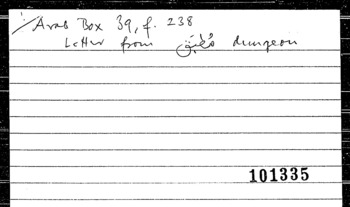 Arab Box 39, f. 238
Letter from dungeon
101335